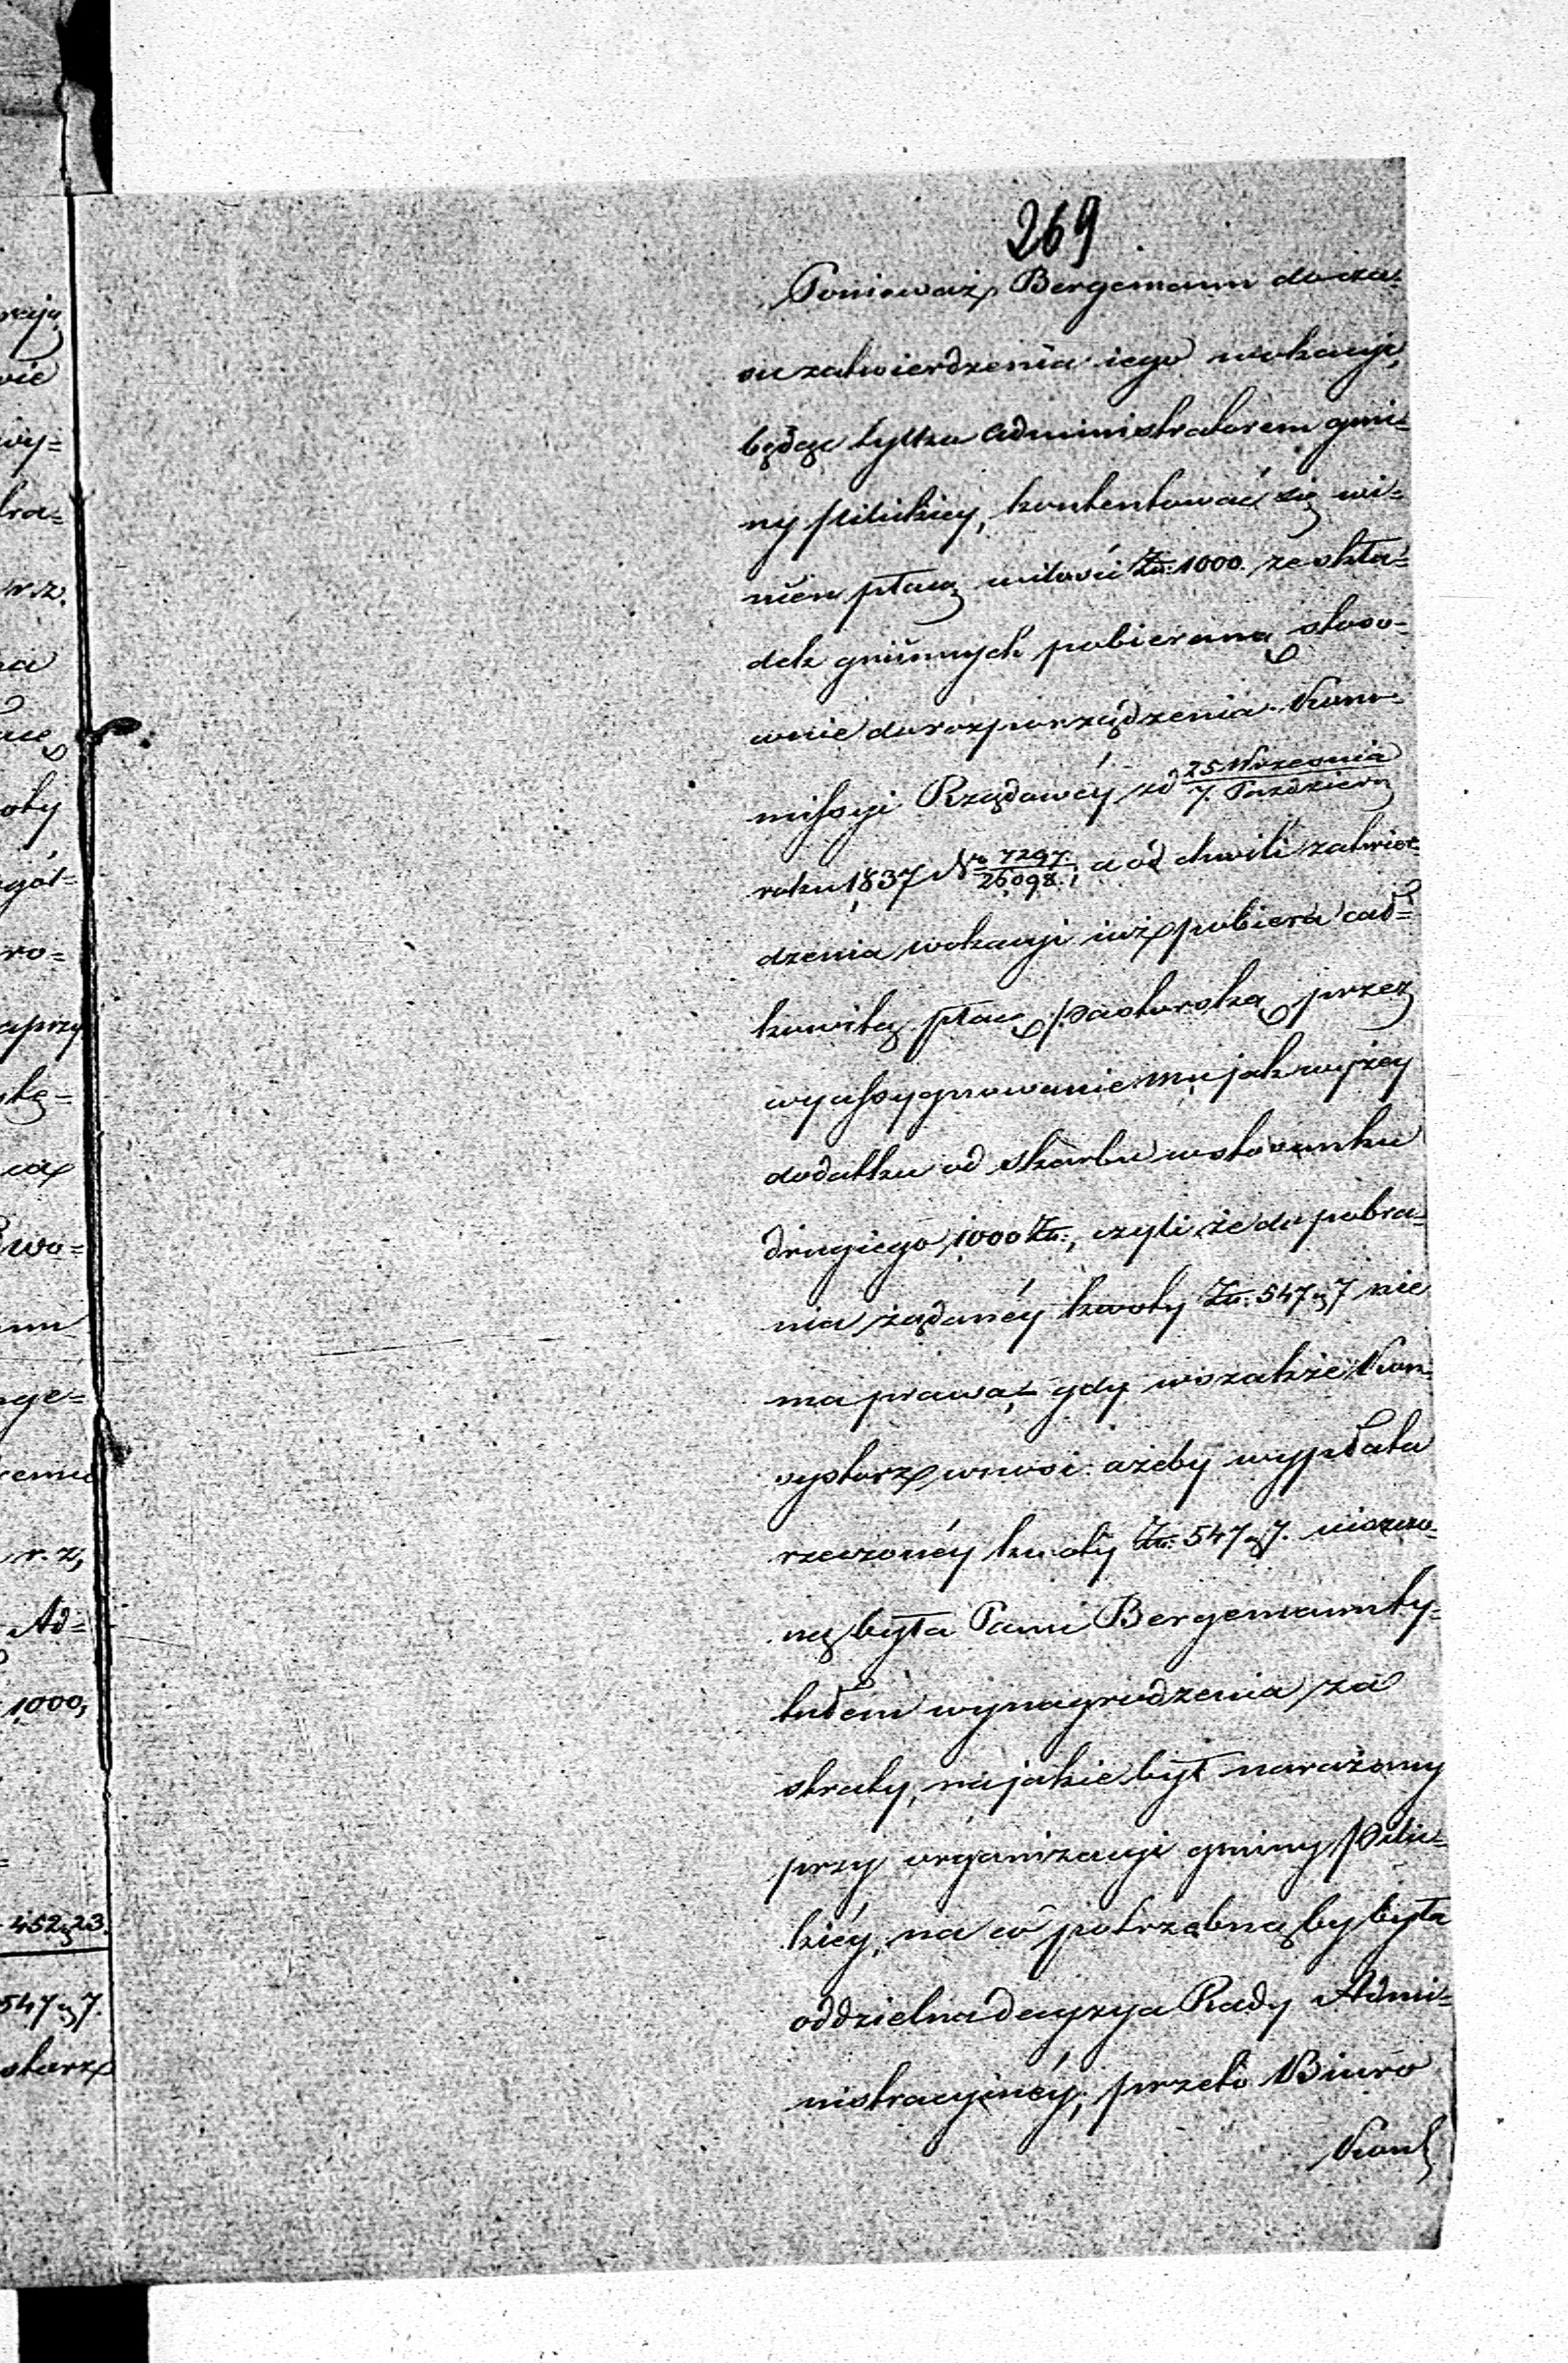 269
Ponieważ Bergemann do cza-
su zatwierdzenia iego wokacyi,
będąc tylko administratorem gmi-
ny Pilickiey, kontentować się wi-
nien płacą w ilości Zł: 1000. ze skła-
dek gminnych pobieraną stoso-
wnie do rozporządzenia Kom-
missyi Rządowéy z d 25 Wrzesnia / 7. Paździer.
roku 1837 No 7297. / 26,098., a od chwili zatwier-
dzenia wokacyi iuż pobiera cał-
kowitą płacę pastorską przez
wyassygnowanie mu jak wyżey
dodatku od skarbu w stosunku
drugiego 1000 Zł:, czyli że do pobra-
nia żądanéy kwoty Zł: 547 g 7 nie
ma prawa;- gdy wszakże Kon-
systorz wnosi: ażeby wypłata
rzeczonéy kwoty Zł: 547 g 7. uiszczo-
ną była Panu Bergemann ty-
tułem wynagrodzenia za
straty, na jakie był narażony
przy organizacyi gminy Pilic-
kiéy, na co potrzebną by była
oddzielna decyzya Rady Admi-
nistracyinéy; przeto Biuro
Kont
rają
wie
wy-
tra-
r. z.
na
oty
gół-
ro-
aprzy
wo-
nge-
remu
r. z,
Ad-
1000,
452 g 23.
547 g 7.
storz